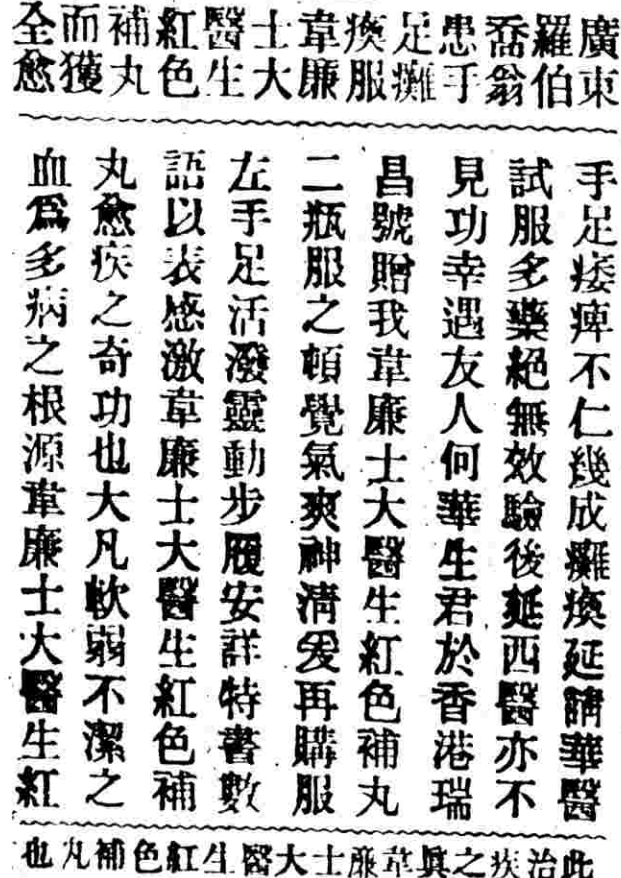 廣東
羅伯
喬翁
患手
足癱
瘓服
韋廉
士大
醫生
紅色
補丸
而獲
全愈
手足痿痺不仁幾成癱瘓延請華醫
試服多藥絕無效驗後延西醫亦不
見功幸遇友人何華生君於香港瑞
昌號贈我韋廉士大醫生紅色補丸
二瓶服之頓覺氣爽神清爰再購服
左手足活潑靈動步履安詳特書數
語以表感激韋廉士大醫生紅色補
丸愈疾之奇功也大凡軟弱不潔之
血爲多病之根源韋廉士大醫生紅
此治疾之眞韋廉士大醫生紅色補丸也